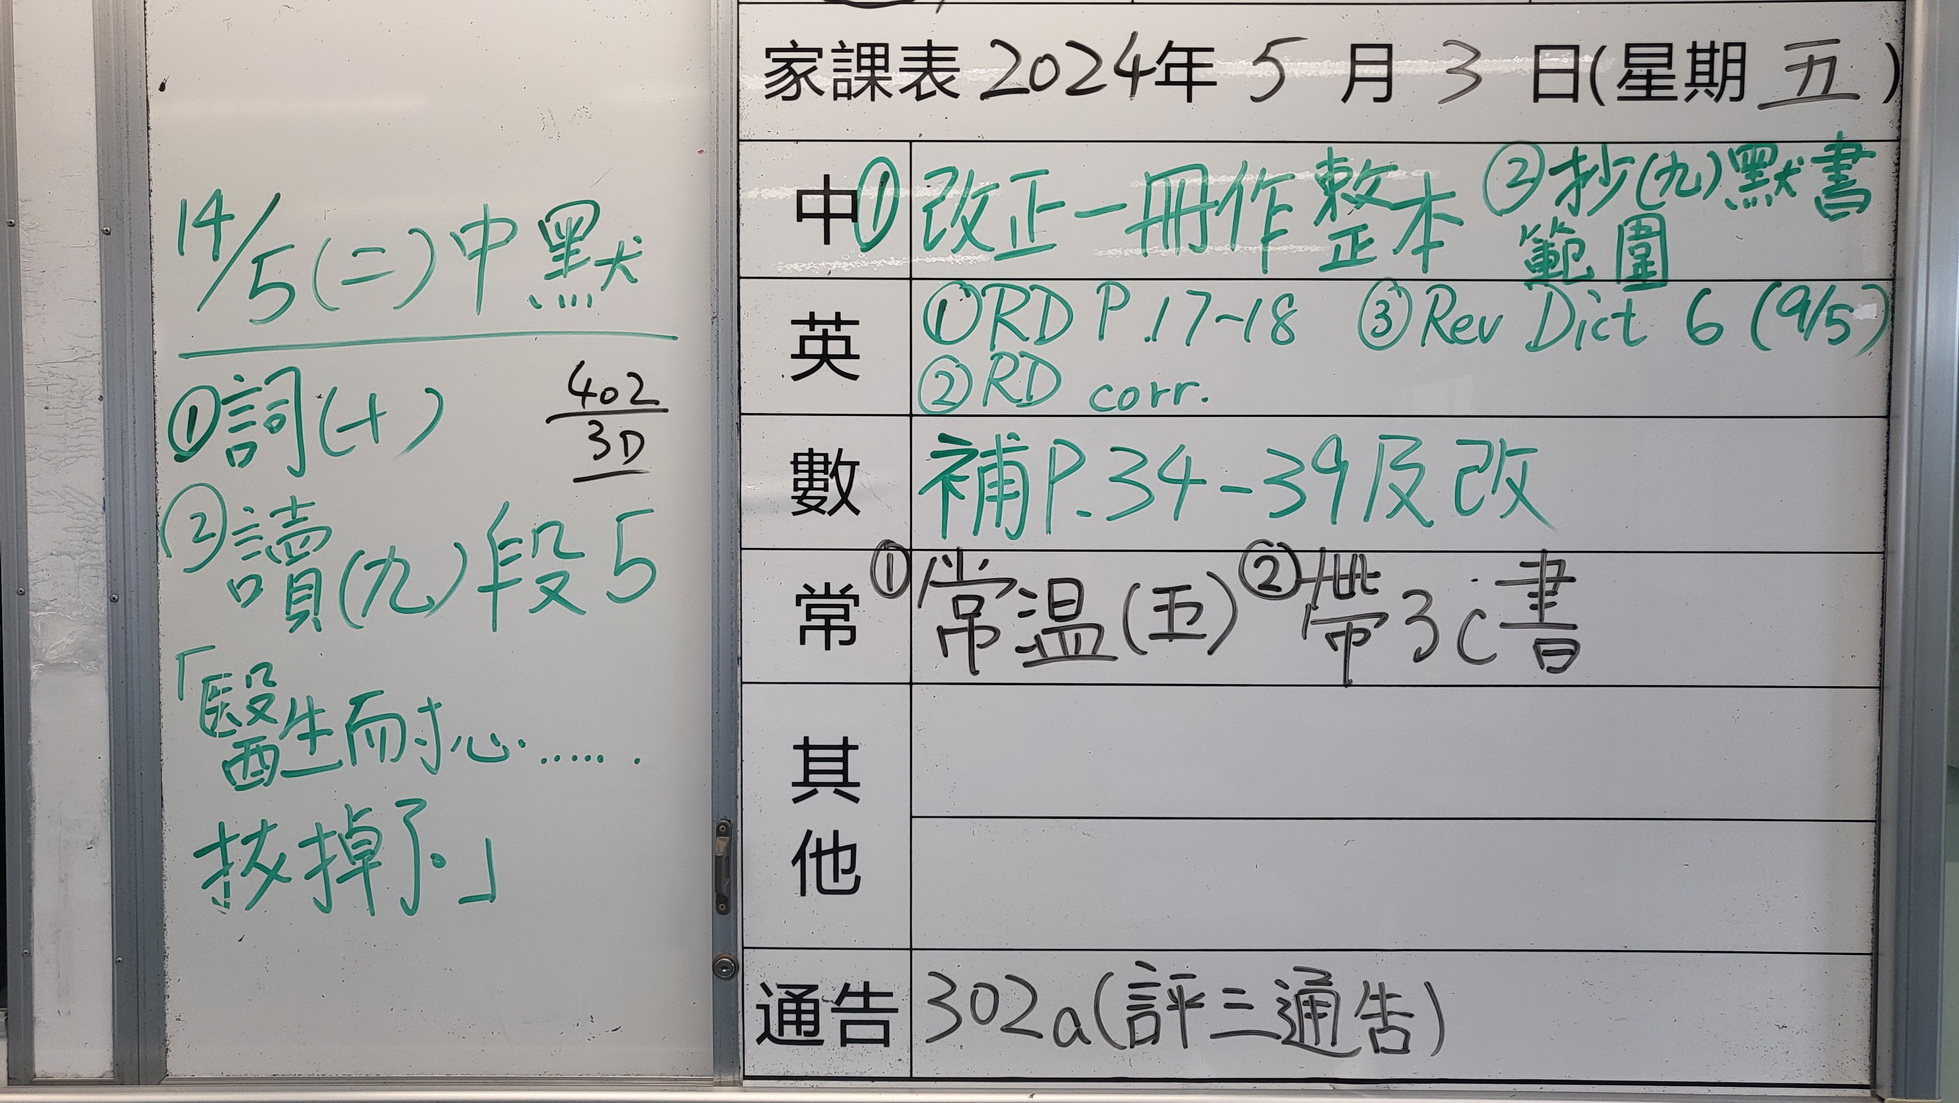 14/5(二)中默
①詞(十)
402
3D
②讀(九)段5
「醫生耐心......
拔掉了。」
家課表 2024年 5 月 3 日(星期 五)
中 ①改正一冊作整本 ②抄(九)默書
範圍
英 ①RD P.17-18 ③Rev Dict 6 (9/5)
②RD corr.
數 補P.34-39及改
常 ①常温(五) ②帶3c書
其
他
通告 302a(評三通告)